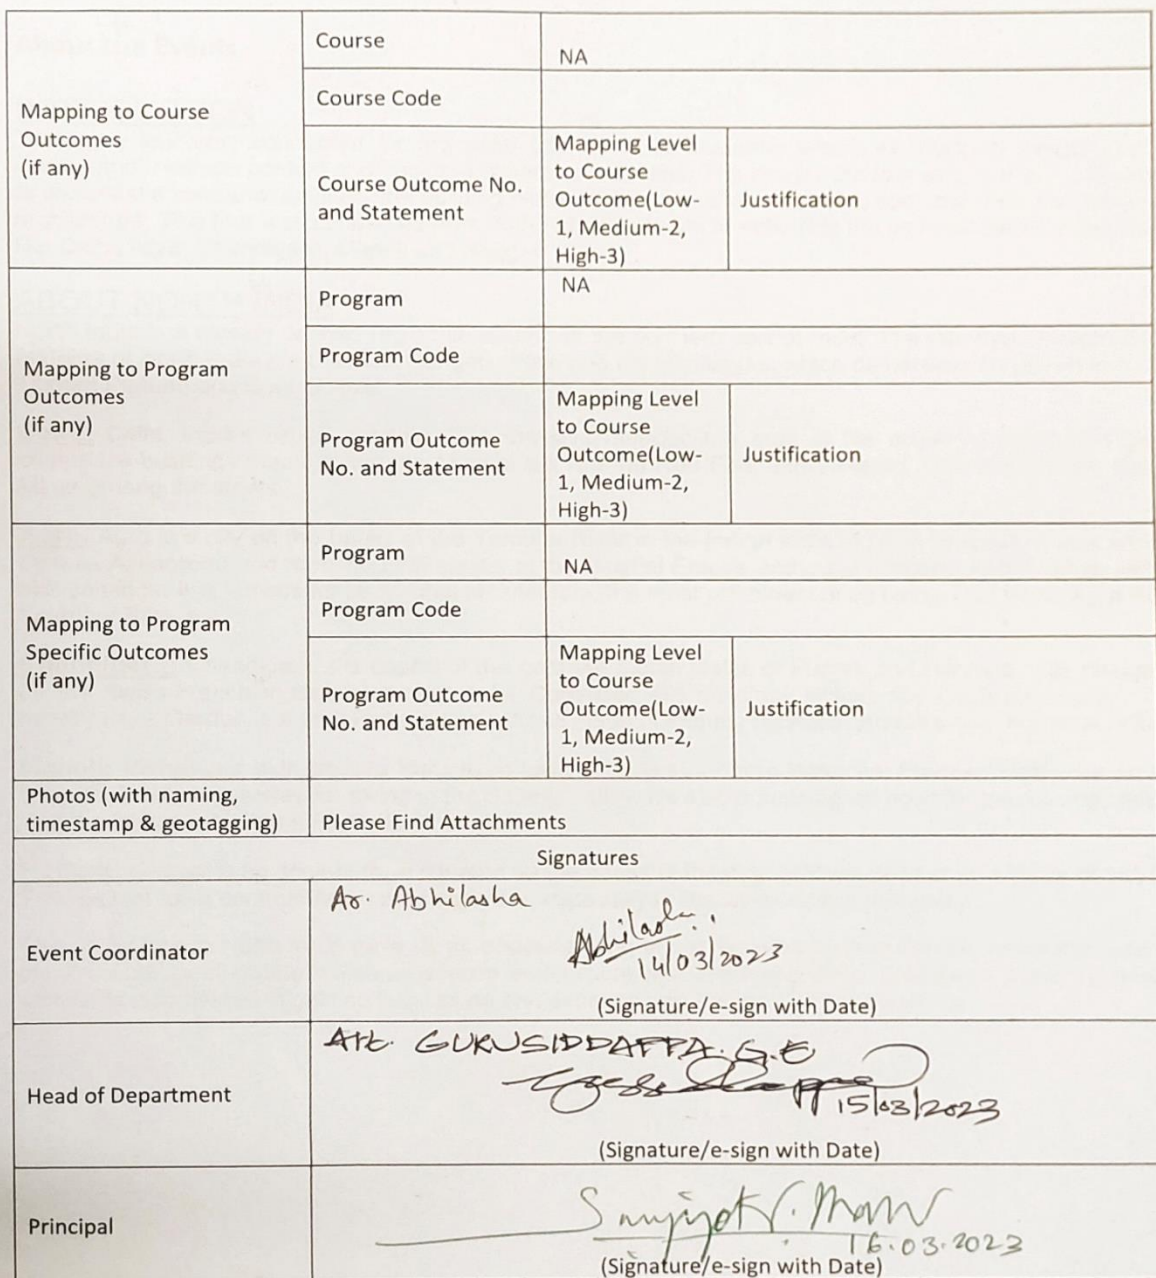 Mapping to Course
Outcomes
(if any)
Course
NA
Course Code
Course Outcome No.
and Statement
Mapping Level
to Course
Outcome(Low-
1, Medium-2,
High-3)
Justification
Mapping to Program
Outcomes
(if any)
Program
NA
Program Code
Program Outcome
No. and Statement
Mapping Level
to Course
Outcome(Low-
1, Medium-2,
High-3)
Justification
Mapping to Program
Specific Outcomes
(if any)
Program
NA
Program Code
Program Outcome
No. and Statement
Mapping Level
to Course
Outcome(Low-
1, Medium-2,
High-3)
Justification
Photos (with naming,
timestamp & geotagging)
Please Find Attachments
Signatures
Event Coordinator
Ar. Abhilasha
Abhilasha
14/03/2023
(Signature/e-sign with Date)
Head of Department
GURUSIDDAPPA. G.E
15/03/2023
(Signature/e-sign with Date)
Principal
16.03.2023
(Signature/e-sign with Date)